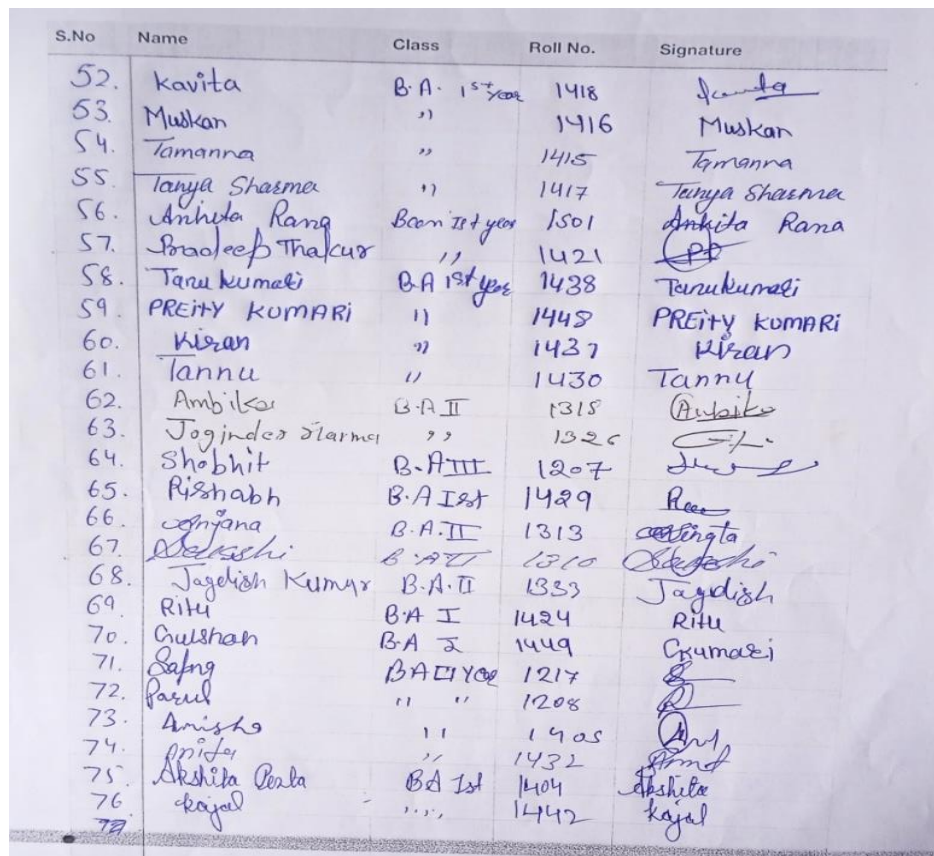 S.No Name Class Roll No. Signature
52. Kavita B.A. 1st year 1418
53. Muskan " 1416 Muskan
54. Tamanna " 1415 Tamanna
55. Tanya Sharma " 1417 Tanya Sharma
56. Ankita Rana Bcom Ist year 1501 Ankita Rana
57. Pradeep Thakur " 1421 PP
58. Tanu kumari B.A 1st year 1438 Tanukumari
59. PREITY KUMARI " 1448 PREITY KUMARI
60. Kiran " 1437 Kiran
61. Tannu " 1430 Tannu
62. Ambika B.A II 1315 Ambika
63. Joginder Sharma " 1326
64. Shobhit B.A III 1207
65. Rishabh B.A Ist 1429
66. Anjana B.A. II 1313
67. Sakshi B.A II 1310 Sakshi
68. Jagdish Kumar B.A. II 1333 Jagdish
69. Ritu B.A I 1424 Ritu
70. Gulshan B.A I 1449 Gkumari
71. Sapna BA III Year 1217
72. Parul " " 1208
73. Anisha " 1405
74. Anita " 1432
75. Akshita BA Ist 1404 Akshita
76 Kajal " 1442 Kajal